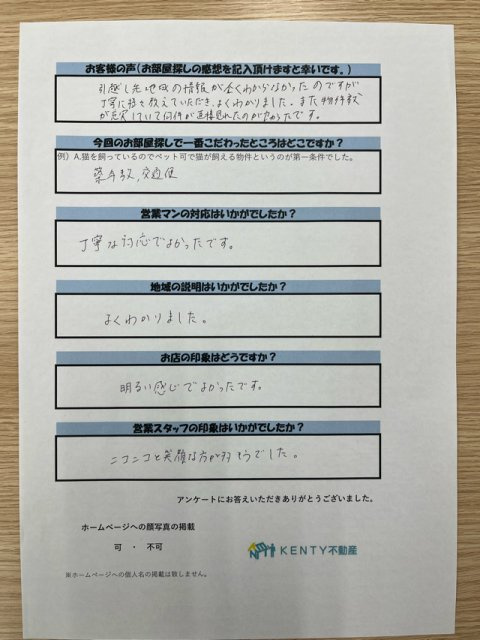 お客様の声(お部屋探しの感想を記入頂けますと幸いです。)
引越し先地域の情報が全くわからなかったのですが
丁寧に教えていただき、よくわかりました。また物件数
が充実していて何件か直接見れたのがよかったです。
今回のお部屋探しで一番こだわったところはどこですか?
例)A.猫を飼っているのでペット可で猫が飼える物件というのが第一条件でした。
築年数、交通便
営業マンの対応はいかがでしたか?
丁寧な対応でよかったです。
地域の説明はいかがでしたか?
よくわかりました。
お店の印象はどうですか?
明るい感じでよかったです。
営業スタッフの印象はいかがでしたか?
ニコニコと笑顔な方が多そうでした。
アンケートにお答えいただきありがとうございました。
ホームページへの顔写真の掲載
可 ・ 不可
KENTY不動産
※ホームページへの個人名の掲載は致しません。